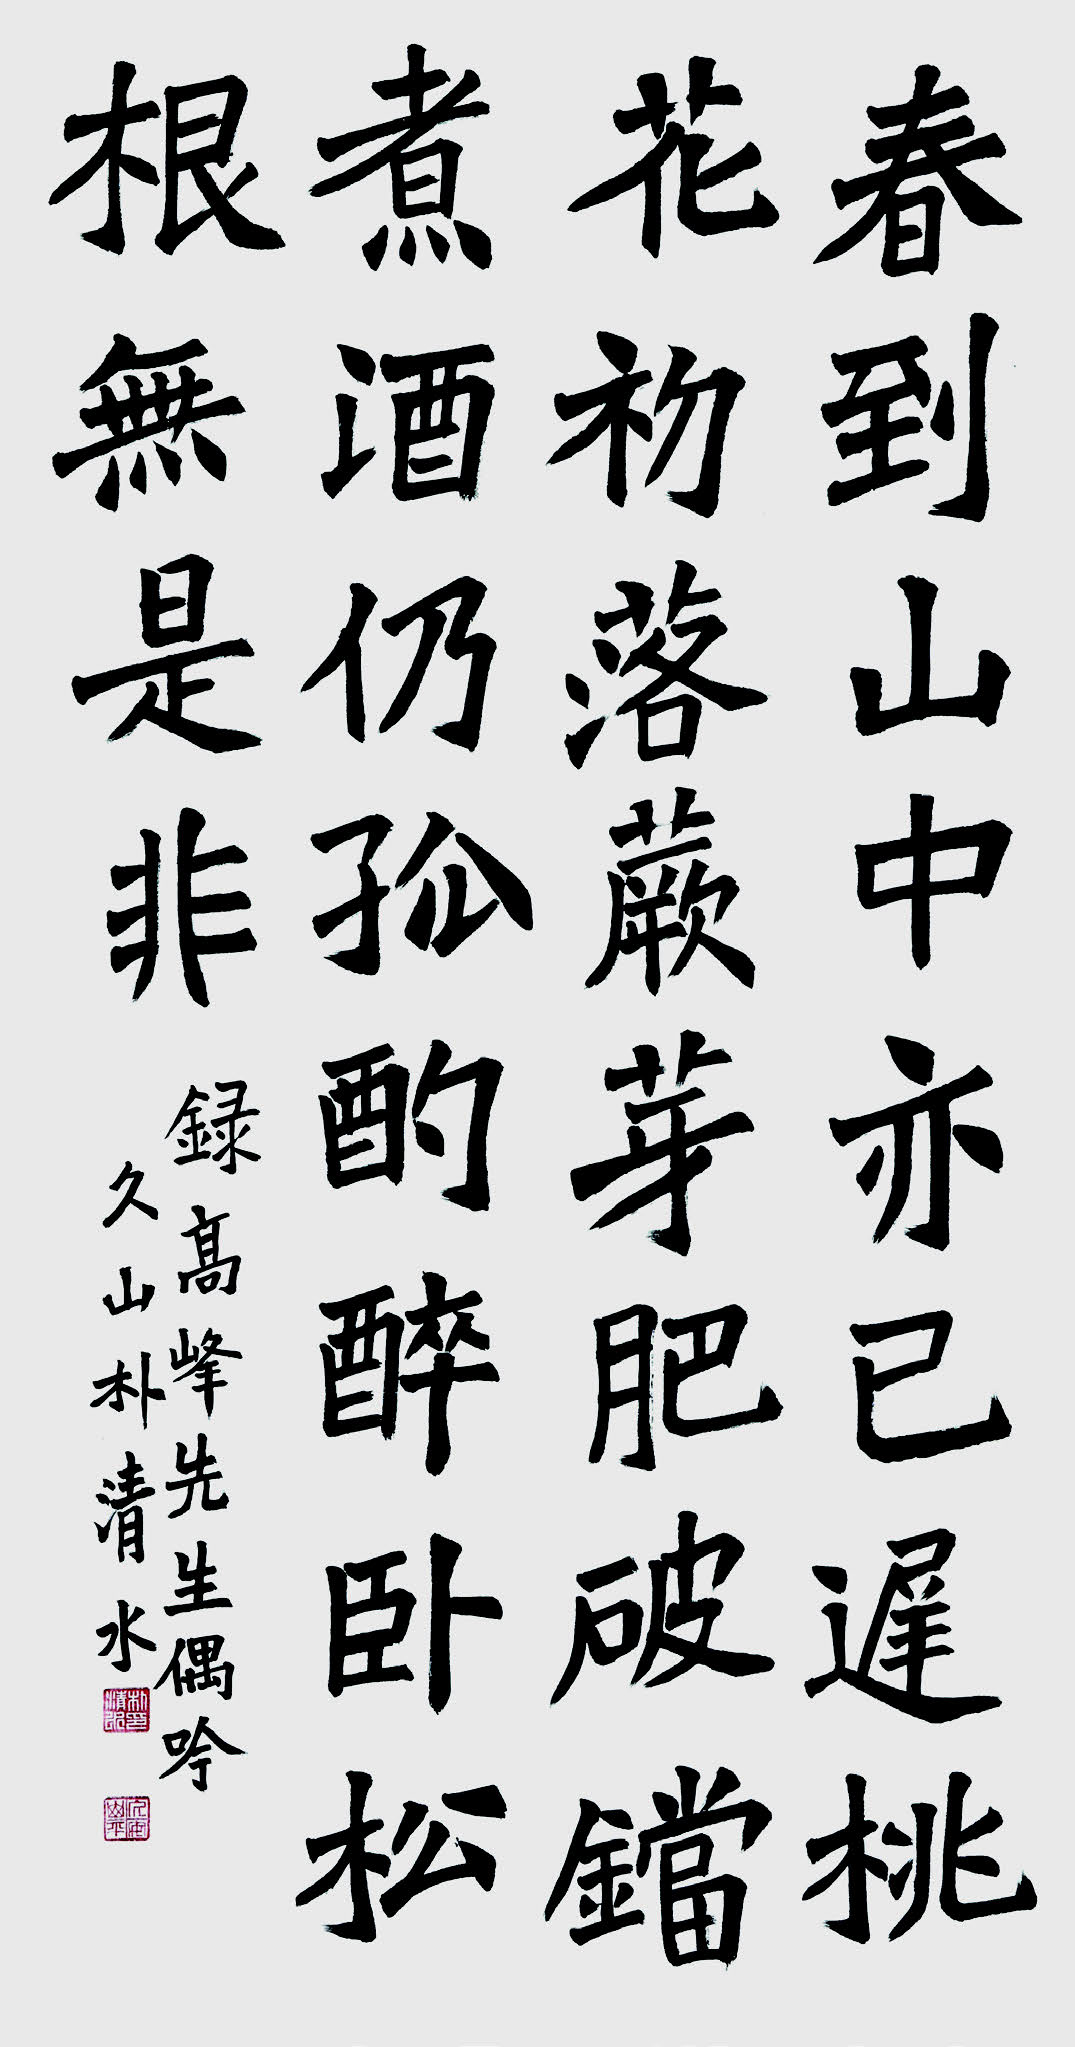 春到山中亦已遲桃
花初落蕨芽肥破鐺
煮酒仍孤酌醉卧松
根無是非
録高峰先生偶吟
久山朴清水